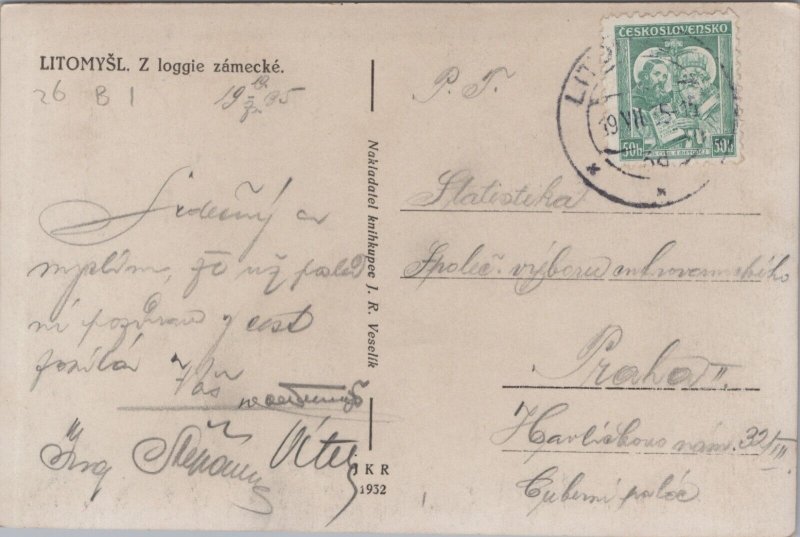 LITOMYŠL. Z loggie zámecké.
26 B 1
19 19/7. 35
Srdečný a
myslím, že už posled
ní pozdrav z cest
posílá Váš
Ing Štěpánek Vítek
Nakladatel knihkupec J. R. Veselík
JKR
1932
ČESKOSLOVENSKO
50h 50h
LITO
19 VII 35-15
P. T.
Statistika
Společ. výboru cukrovarnického
Praha II.
Havlíčkovo nám. 32/III
Cuberní palác